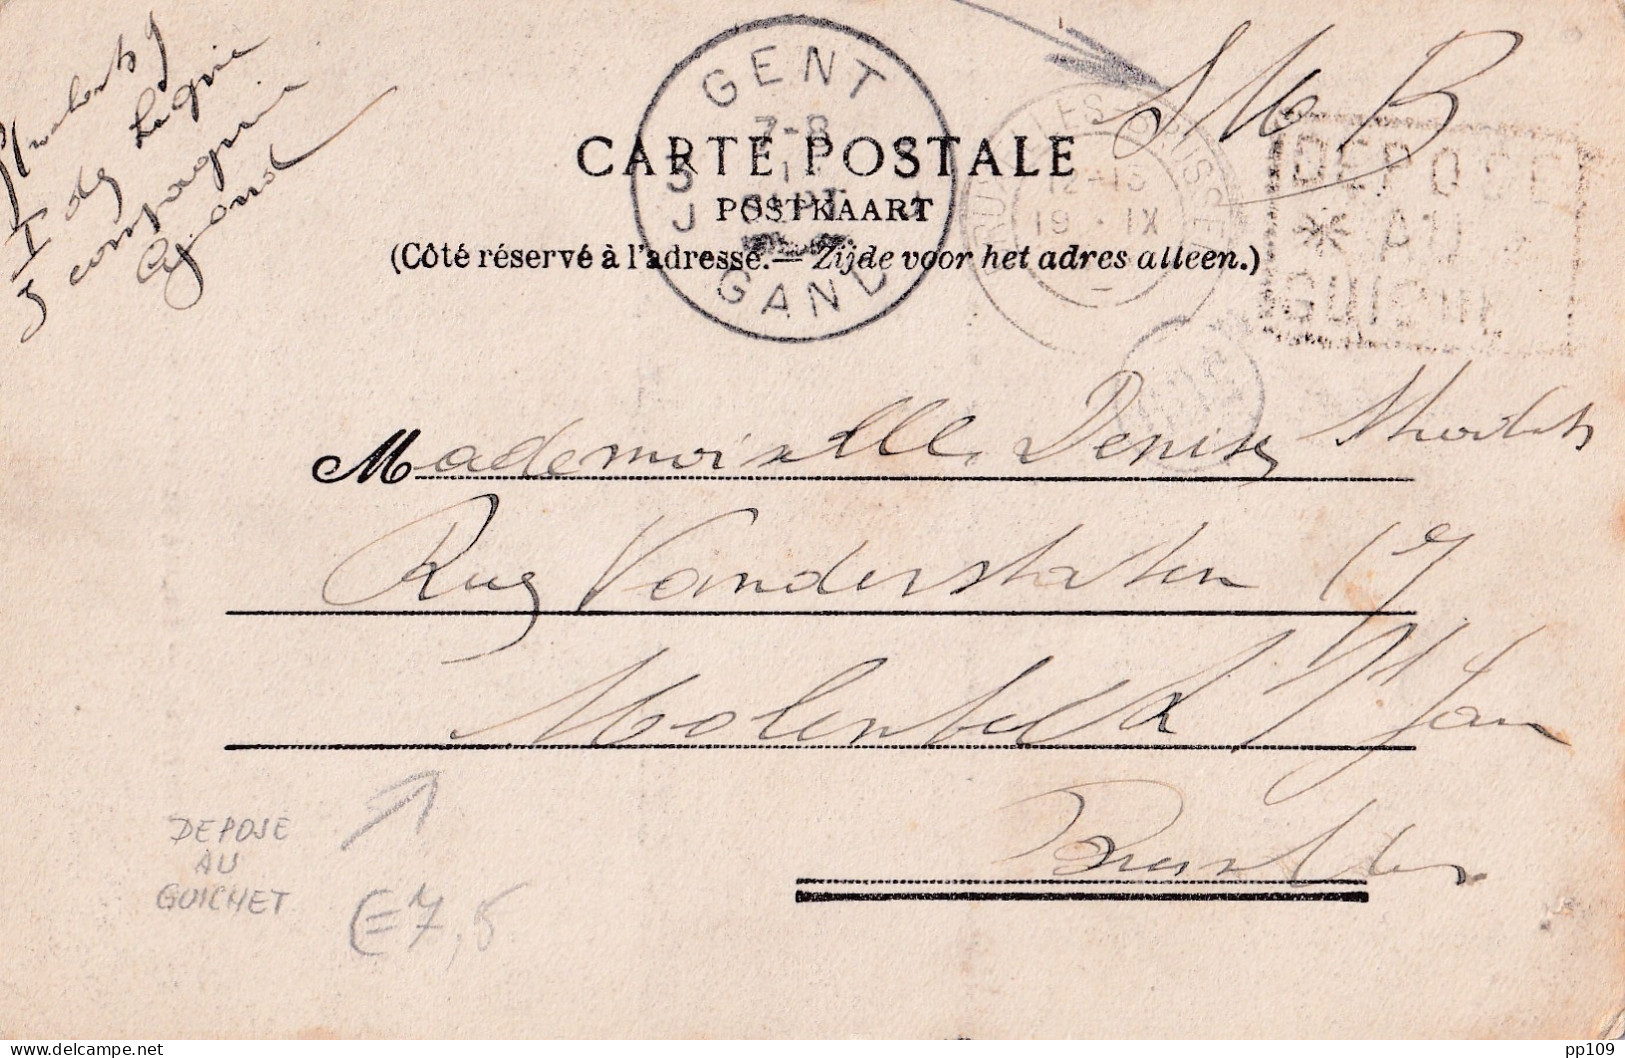 Huberts J
I de Ligne
5 compagnie
Gand
SMB
GENT
7-8
1
SEPT
GAND
BRUXELLES-BRUSSEL
12-13
19 · IX
DEPOSE
* AU *
GUICHET
CARTE POSTALE
POSTKAART
(Côté réservé à l'adresse.— Zijde voor het adres alleen.)
Mademoiselle Denise
Rue Vanderstraten 17
Molenbeek St Jean
Bruxelles
DEPOSE
AU
GUICHET
€=7,5
pp109